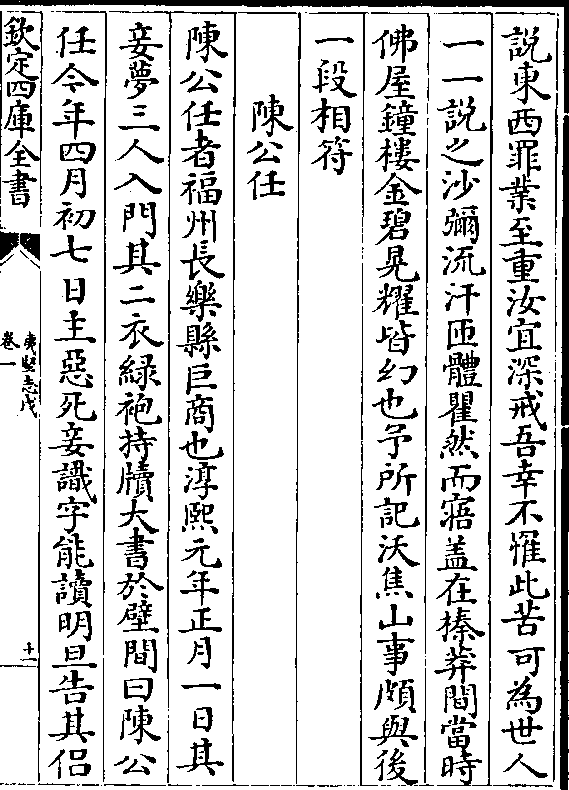 説東西罪業至重汝宜深戒吾幸不惟此苦可為世人
一一説之沙彌流汗匝體瞿然而寤盖在榛莽間當時
佛屋鐘樓金碧晃耀皆幻也予所記沃焦山事頗與後
一段相符
陳公任
陳公任者福州長樂縣巨商也淳熙元年正月一日其
妾夢三人入門其二衣緑袍持牘大書於壁間曰陳公
任今年四月初七日主惡死妾識字能讀明旦告其侣
欽定四庫全書
夷堅志戊
卷一
十一